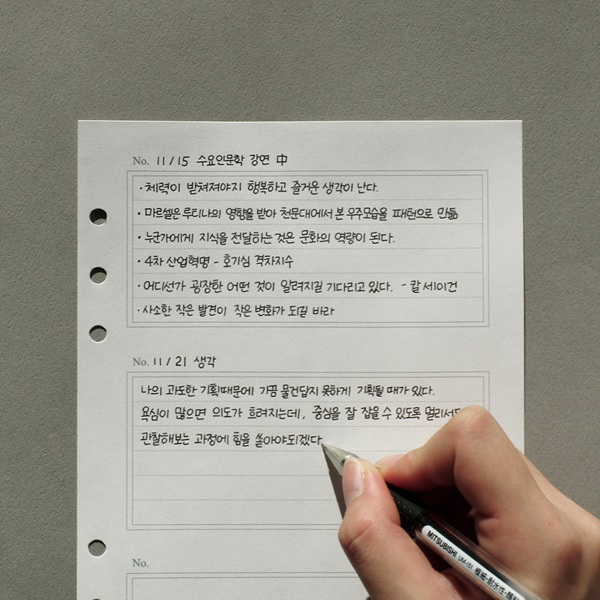 No. 11/15 수요인문학 강연 中
· 체력이 받쳐져야지 행복하고 즐거운 생각이 난다.
· 마르셀은 루티나의 영향을 받아 천문대에서 본 우주모습을 표현으로 만듦
· 누군가에게 지식을 전달하는 것은 문화의 역량이 된다.
· 4차 산업혁명 - 호기심 격차지수
· 어디선가 굉장한 어떤 것이 알려지길 기다리고 있다. - 칼 세이건
· 사소한 작은 발견이 작은 변화가 되길 바라
No. 11/21 생각
나의 과도한 기획때문에 가끔 물건답지 못하게 기획될 때가 있다.
욕심이 많으면 의도가 흐려지는데, 중심을 잘 잡을 수 있도록 멀리서
관찰해보는 과정에 힘을 쏟아야되겠다
MITSUBISHI UM-151 極細・耐水性
No.